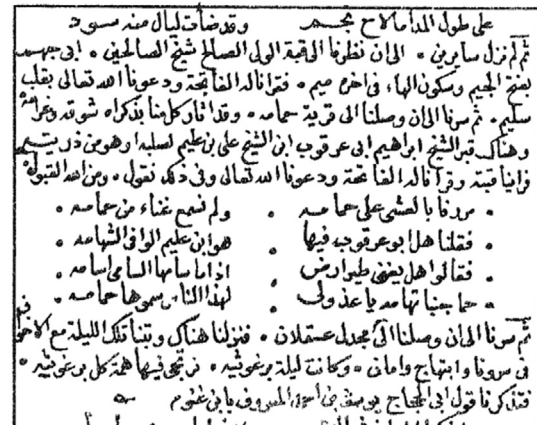 على طول المدا ما لاح نجم وقد ضأت ليال منه سود
ثم لم نزل سايرين الى ان نظرنا الى قبة الولى الصالح شيخ الصالحين ابى جهم
بفتح الجيم وسكون الهاء فى اخره ميم فقرانا له الفاتحة ودعونا الله تعالى بقلب
سليم ثم سرنا الى ان وصلنا الى قرية حمامه وقد اثار كل منا بذكراه شوقه وغرامه
وهناك قبر الشيخ ابراهيم ابى عرقوب ابن الشيخ على بن عليم لصلبه او هو من ذريته
فراينا قبته وقرانا له الفاتحة ودعونا الله تعالى وفى ذلك نقول ومن الله القبول
مررنا بالعشى على حمامه ولم نسمع غناء من حمامه
فقلنا هل ابو عرقوب فيها هو ابن عليم الوافى الشهامه
فقالوا هل يغنى طير ارض اذا ما سامها السامى اسامه
حما جنباتها مه يا عذولى لهذا الناس سموها حمامه
ثم سرنا الى ان وصلنا الى مجدل عسقلان فنزلنا هناك وبتنا تلك الليلة مع الاخوان
فى سرور وابتهاج وامانى وكانت ليلة برغوثيه نرتجى فيها همة كل برغوثيه
فتذكرنا قول ابى الحجاج يوسف بن المعروف بابن غنوم